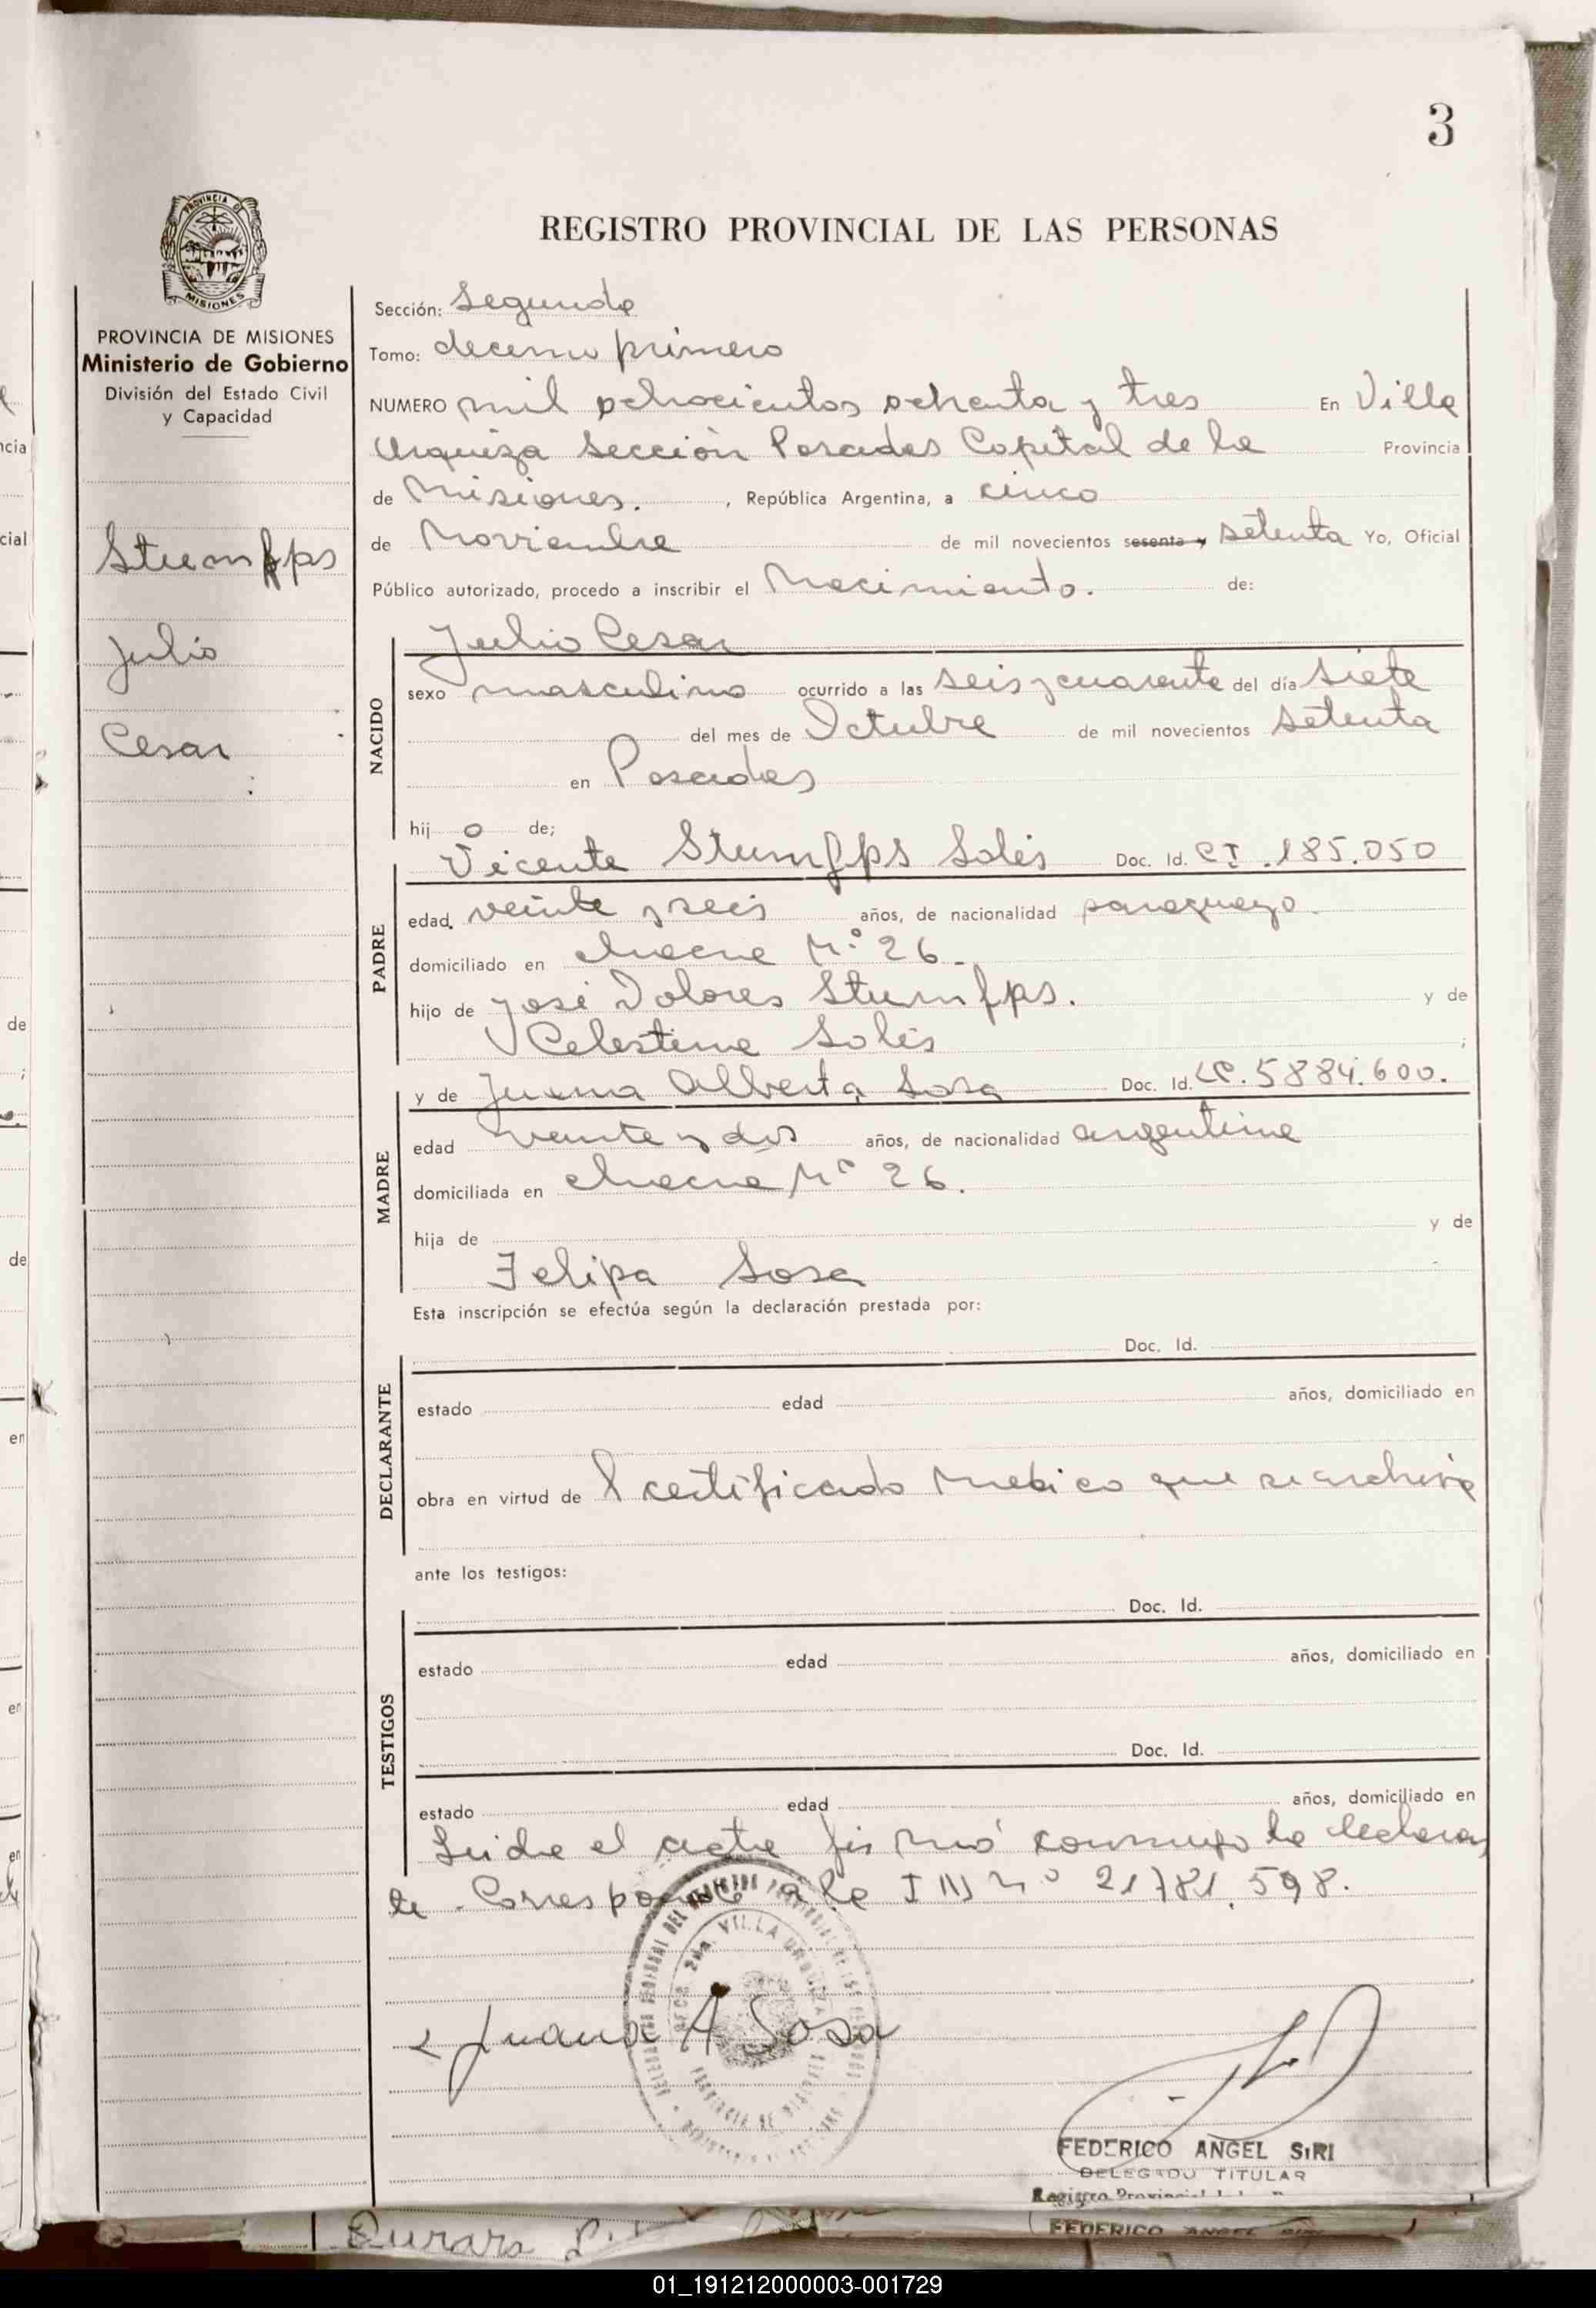 3
PROVINCIA DE
MISIONES
REGISTRO PROVINCIAL DE LAS PERSONAS
PROVINCIA DE MISIONES
Ministerio de Gobierno
División del Estado Civil
y Capacidad
Stumfps
Julio
Cesar
Sección: Segunda
Tomo: decimo primero
NUMERO mil ochocientos ochenta y tres En Villa
Urquiza Sección Posadas Capital de la Provincia
de Misiones. , República Argentina, a cinco
de Noviembre de mil novecientos sesenta y setenta Yo, Oficial
Público autorizado, procedo a inscribir el Nacimiento. de:
Julio Cesar
NACIDO
sexo masculino ocurrido a las seis y cuarenta del día siete
del mes de Octubre de mil novecientos setenta
en Posadas
hij o de;
Vicente Stumfps Solis Doc. Id. CI .185.050
PADRE
edad. veinte y seis años, de nacionalidad paraguayo.
domiciliado en chacra N.º 26.
hijo de José Dolores Stumfps. y de
Celestina Solis ;
y de Juana Alberta Sosa Doc. Id. LC. 5884.600.
MADRE
edad veinte y dos años, de nacionalidad argentina
domiciliada en chacra Nº 26.
hija de y de
Felipa Sosa
Esta inscripción se efectúa según la declaración prestada por:
Doc. Id.
DECLARANTE
estado edad años, domiciliado en
obra en virtud de l certificado medico que se archiva
ante los testigos:
Doc. Id.
TESTIGOS
estado edad años, domiciliado en
Doc. Id.
estado edad años, domiciliado en
Leida el acta firmó conmigo la declaran
te. Corresponde a la Nº 21781.598.
VILLA URQUIZA
Juana A Sosa
FEDERICO ANGEL SIRI
DELEGADO TITULAR
Registro Provincial
FEDERICO ANGEL SIRI
01_191212000003-001729